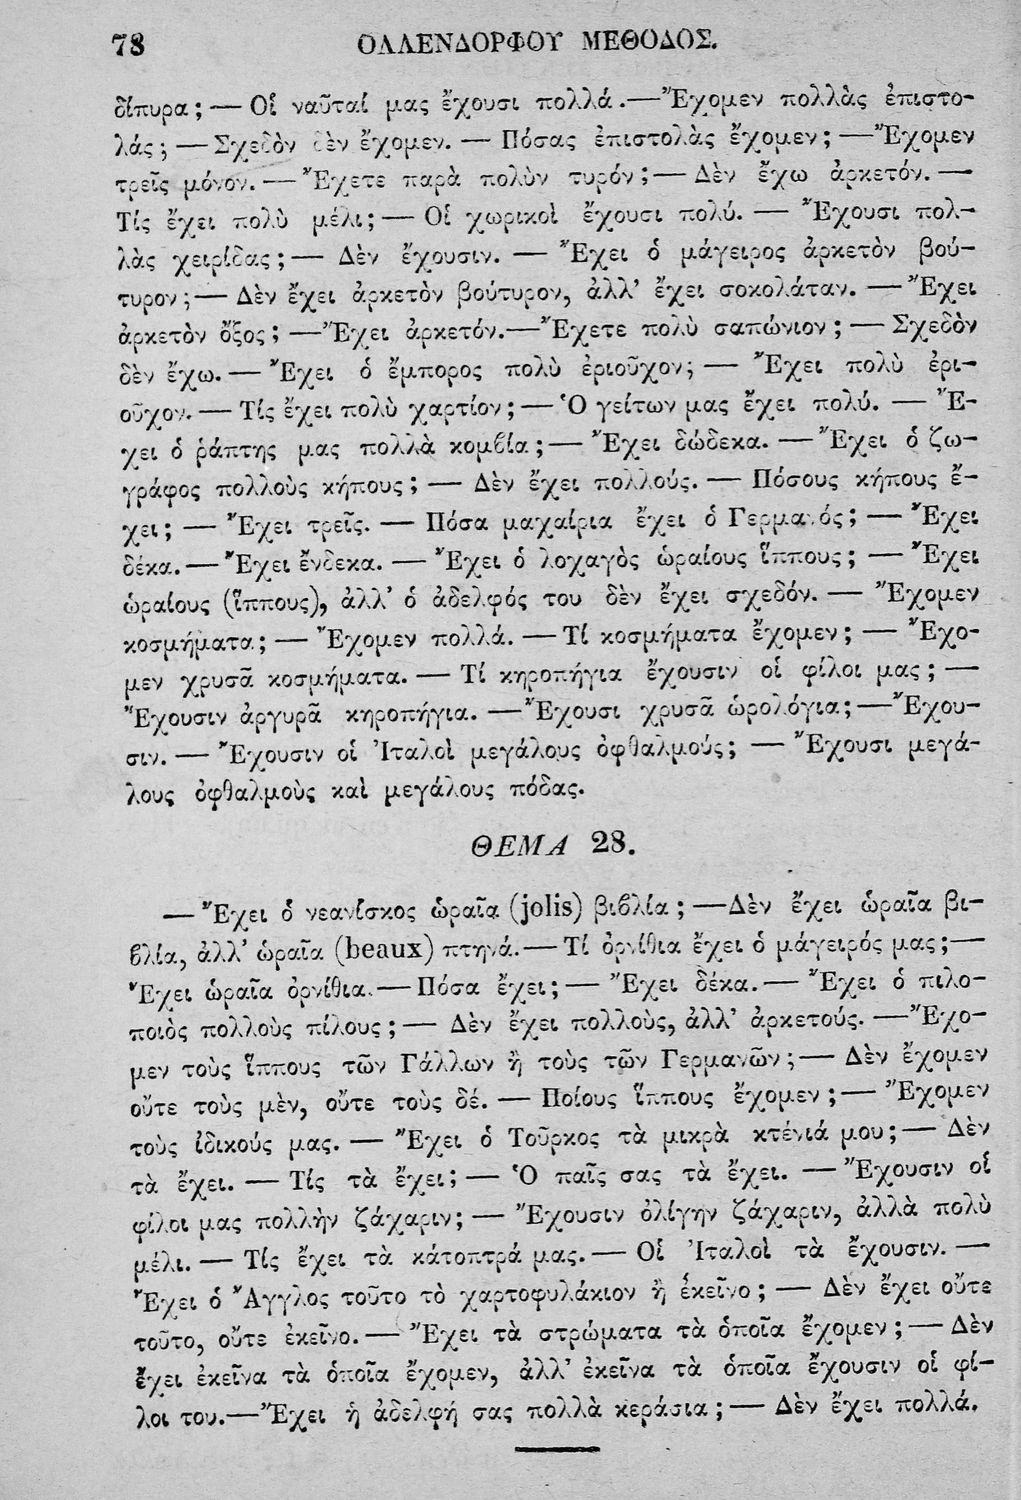 78 ΟΛΛΕΝΔΟΡΦΟΥ ΜΕΘΟΔΟΣ.
δίπυρα; — Οἱ ναῦταί μας ἔχουσι πολλά.—Ἔχομεν πολλὰς ἐπιστο-
λάς; — Σχεδὸν δὲν ἔχομεν. — Πόσας ἐπιστολὰς ἔχομεν; —Ἔχομεν
τρεῖς μόνον. — Ἔχετε παρὰ πολὺν τυρόν;— Δὲν ἔχω ἀρκετόν. —
Τίς ἔχει πολὺ μέλι;— Οἱ χωρικοὶ ἔχουσι πολύ. — Ἔχουσι πολ-
λὰς χειρίδας;— Δὲν ἔχουσιν. — Ἔχει ὁ μάγειρος ἀρκετὸν βού-
τυρον;— Δὲν ἔχει ἀρκετὸν βούτυρον, ἀλλ' ἔχει σοκολάταν. —Ἔχει
ἀρκετὸν ὄξος; —Ἔχει ἀρκετόν.—Ἔχετε πολὺ σαπώνιον; — Σχεδὸν
δὲν ἔχω. — Ἔχει ὁ ἔμπορος πολὺ ἐριοῦχον; — Ἔχει πολὺ ἐρι-
οῦχον. — Τίς ἔχει πολὺ χαρτίον;—Ὁ γείτων μας ἔχει πολύ. — Ἔ-
χει ὁ ῥάπτης μας πολλὰ κομϐία;— Ἔχει δώδεκα. —Ἔχει ὁ ζω-
γράφος πολλοὺς κήπους; — Δὲν ἔχει πολλούς. — Πόσους κήπους ἔ-
χει; — Ἔχει τρεῖς. — Πόσα μαχαίρια ἔχει ὁ Γερμανός; — Ἔχει
δέκα. — Ἔχει ἕνδεκα. — Ἔχει ὁ λοχαγὸς ὡραίους ἵππους; — Ἔχει
ὡραίους (ἵππους), ἀλλ' ὁ ἀδελφός του δὲν ἔχει σχεδόν. — Ἔχομεν
κοσμήματα; — Ἔχομεν πολλά. — Τί κοσμήματα ἔχομεν; — Ἔχο-
μεν χρυσᾶ κοσμήματα. — Τί κηροπήγια ἔχουσιν οἱ φίλοι μας; —
Ἔχουσιν ἀργυρᾶ κηροπήγια. —Ἔχουσι χρυσᾶ ὡρολόγια;—Ἔχου-
σιν. — Ἔχουσιν οἱ Ἰταλοὶ μεγάλους ὀφθαλμούς; — Ἔχουσι μεγά-
λους ὀφθαλμοὺς καὶ μεγάλους πόδας.
ΘΕΜΑ 28.
— Ἔχει ὁ νεανίσκος ὡραῖα (jolis) βιϐλία; —Δὲν ἔχει ὡραῖα βι-
ϐλία, ἀλλ' ὡραῖα (beaux) πτηνά.— Τί ὀρνίθια ἔχει ὁ μάγειρός μας;—
Ἔχει ὡραῖα ὀρνίθια.— Πόσα ἔχει;— Ἔχει δέκα.— Ἔχει ὁ πιλο-
ποιὸς πολλοὺς πίλους;— Δὲν ἔχει πολλοὺς, ἀλλ' ἀρκετούς. —Ἔχο-
μεν τοὺς ἵππους τῶν Γάλλων ἢ τοὺς τῶν Γερμανῶν;— Δὲν ἔχομεν
οὔτε τοὺς μὲν, οὔτε τοὺς δέ. — Ποίους ἵππους ἔχομεν;— Ἔχομεν
τοὺς ἰδικούς μας. — Ἔχει ὁ Τοῦρκος τὰ μικρὰ κτένιά μου;— Δὲν
τὰ ἔχει. — Τίς τὰ ἔχει;— Ὁ παῖς σας τὰ ἔχει. —Ἔχουσιν οἱ
φίλοι μας πολλὴν ζάχαριν; — Ἔχουσιν ὀλίγην ζάχαριν, ἀλλὰ πολὺ
μέλι. — Τίς ἔχει τὰ κάτοπτρά μας.— Οἱ Ἰταλοὶ τὰ ἔχουσιν. —
Ἔχει ὁ Ἄγγλος τοῦτο τὸ χαρτοφυλάκιον ἢ ἐκεῖνο; — Δὲν ἔχει οὔτε
τοῦτο, οὔτε ἐκεῖνο.— Ἔχει τὰ στρώματα τὰ ὁποῖα ἔχομεν;— Δὲν
ἔχει ἐκεῖνα τὰ ὁποῖα ἔχομεν, ἀλλ' ἐκεῖνα τὰ ὁποῖα ἔχουσιν οἱ φί-
λοι του.—Ἔχει ἡ ἀδελφή σας πολλὰ κεράσια;— Δὲν ἔχει πολλά.